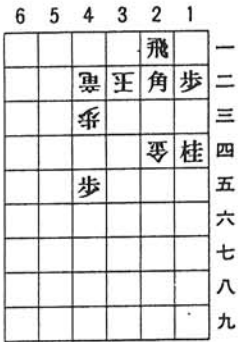 6 5 4 3 2 1
飛 一
竜 玉 角 歩 二
歩 三
金 桂 四
歩 五
六
七
八
九